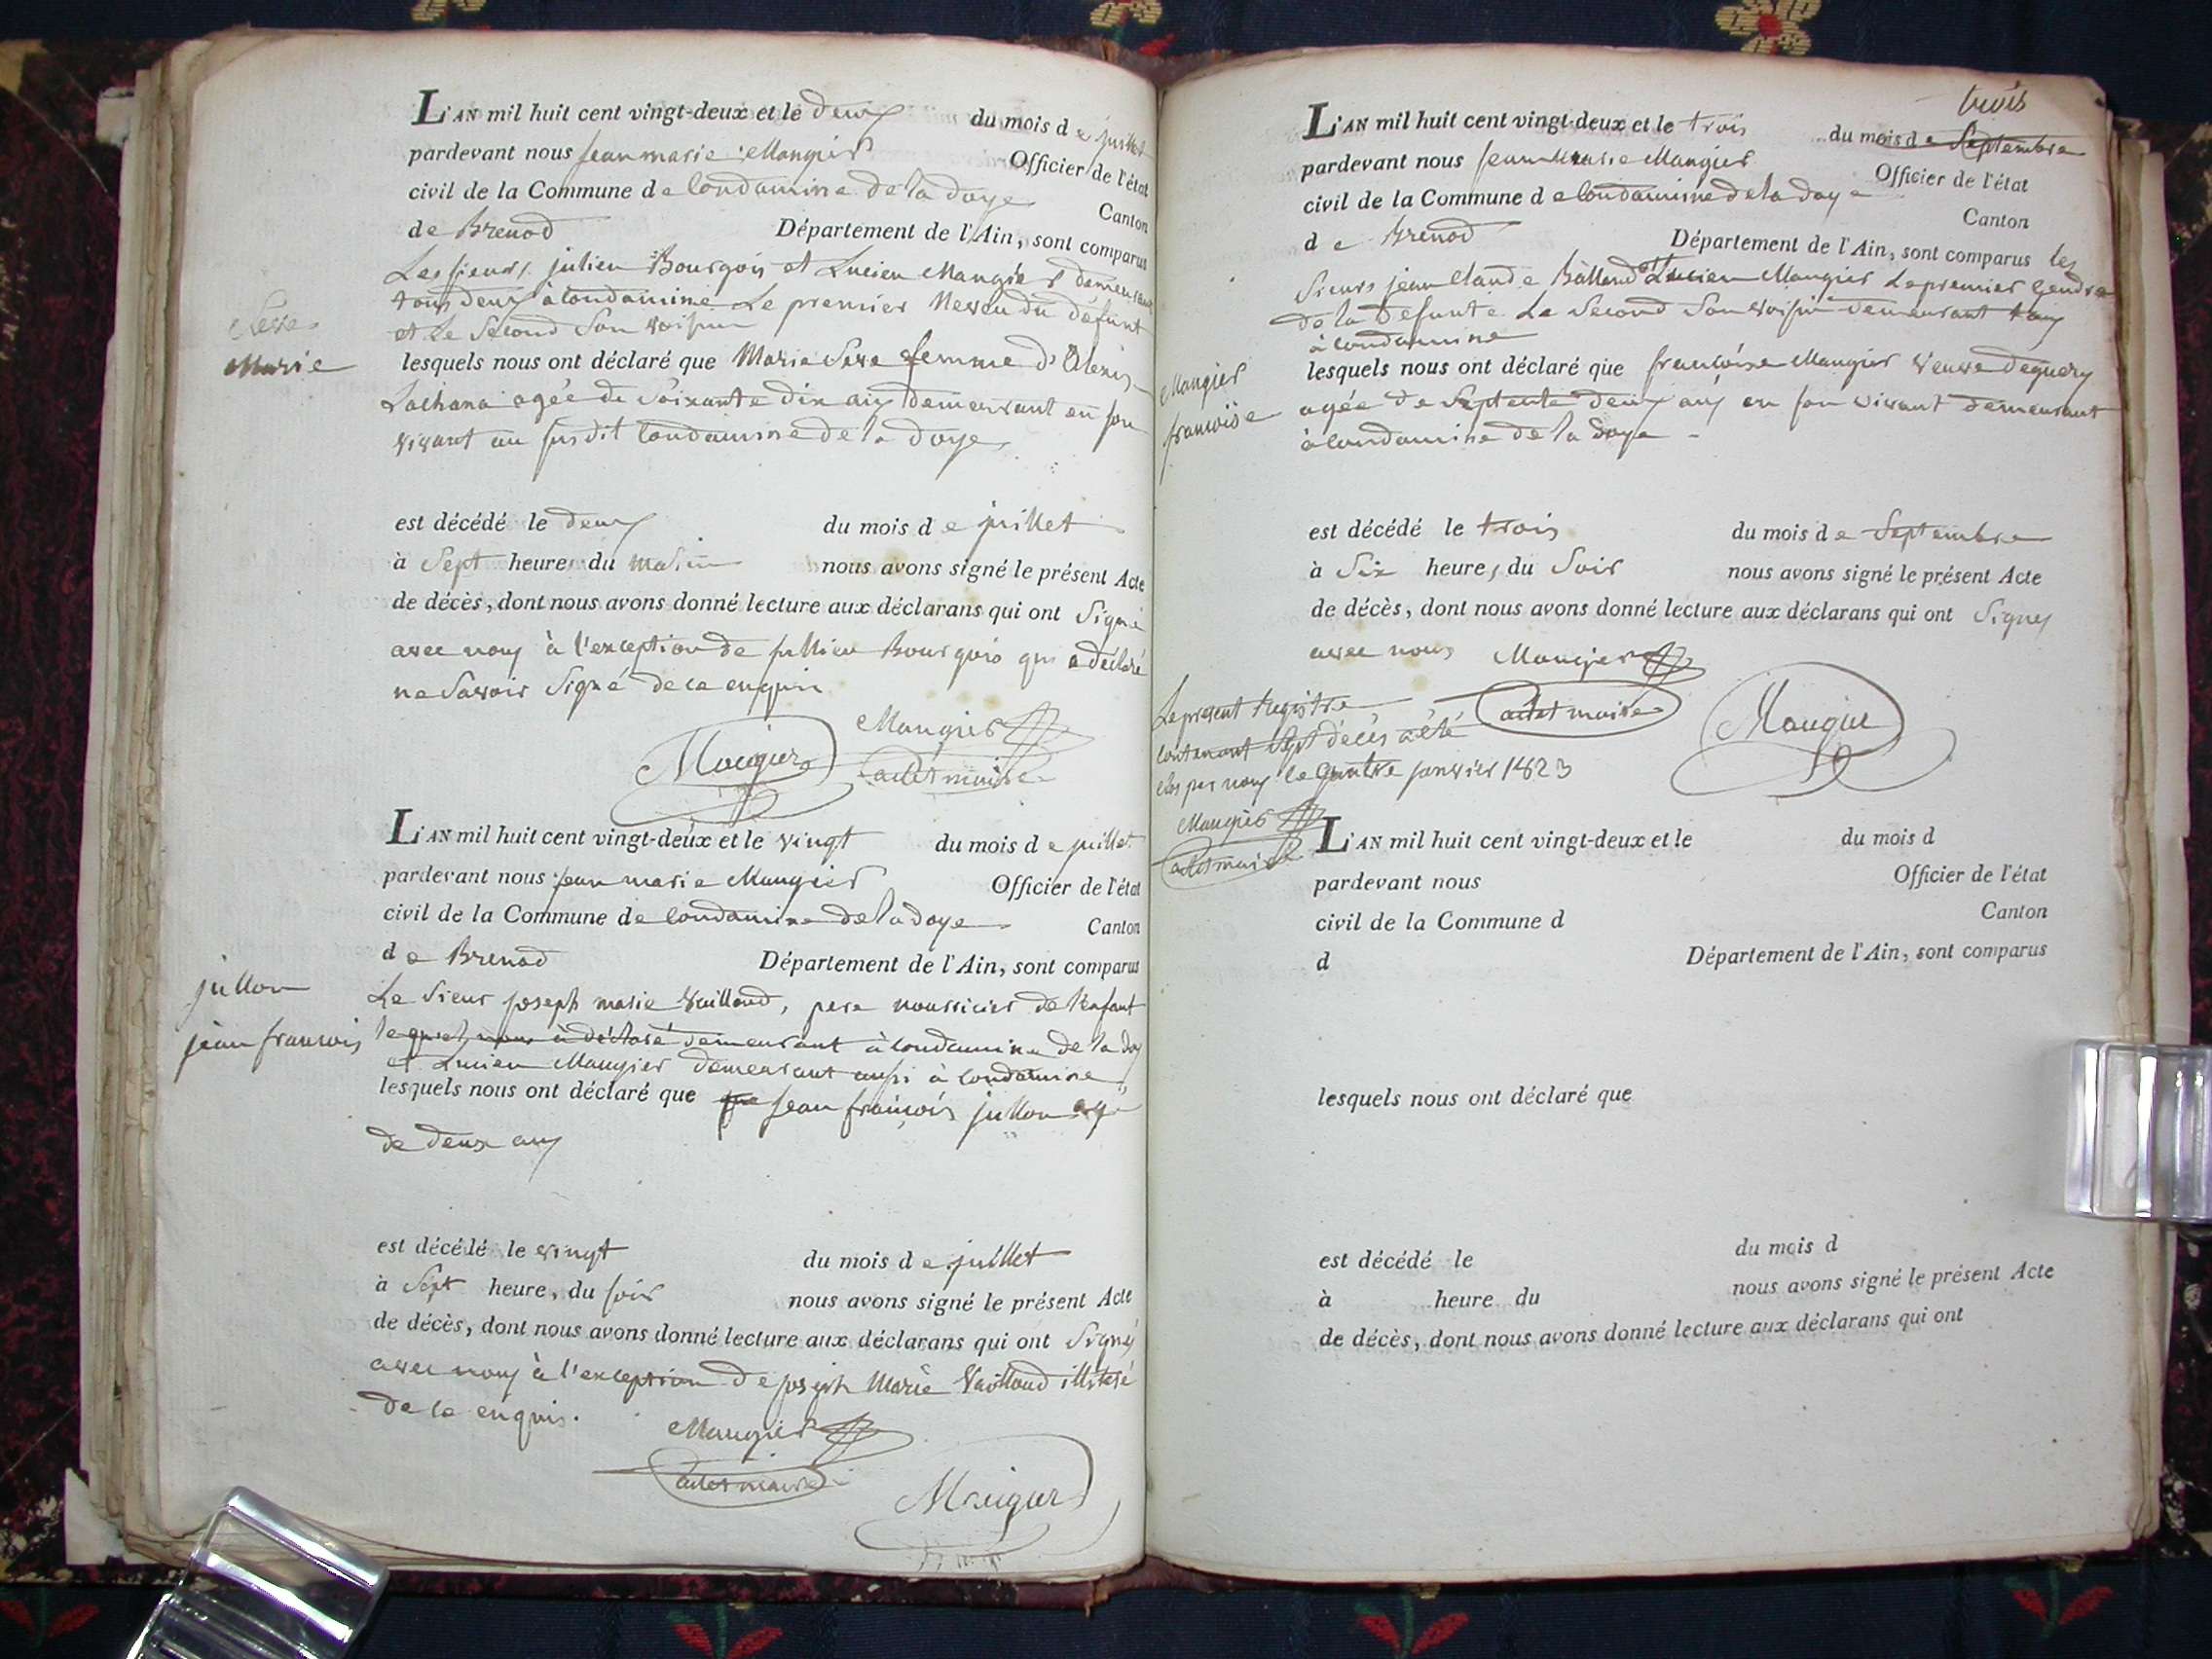 L'AN mil huit cent vingt-deux et le deux du mois de juillet
pardevant nous jean marie Maugier Officier de l'état
civil de la Commune de Condamine de la doye Canton
de Brenod Département de l'Ain, sont comparus
Les sieurs julien Bourgois et Lucien Maugier demeurant
tous deux à Condamine Le premier Neveu du défunt
et Le Second Son voisin
Marie
lesquels nous ont déclaré que Marie Seve femme d'Alexis
agée de Soixante dix ans demeurant en son
vivant au susdit Condamine de la doye
est décédé le deux du mois de juillet
à Sept heures du matin nous avons signé le présent Acte
de décès, dont nous avons donné lecture aux déclarans qui ont Signé
avec nous à l'exception de jullien Bourgois qui a déclaré
ne Savoir Signé de ce enquis
Maugier
Maugier
adet maire
L'AN mil huit cent vingt-deux et le vingt du mois de juillet
pardevant nous jean marie Maugier Officier de l'état
civil de la Commune de Condamine de la doye Canton
de Brenod Département de l'Ain, sont comparus
jullon
jean francois
Le Sieur joseph marie Vailloud, pere nourricier de l'enfant
lequel nous à déclaré demeurant à Condamine de la doy
et Lucien Maugier demeurant aussi à Condamine
lesquels nous ont déclaré que que jean françois jullon agé
de deux ans
est décédé le vingt du mois de juillet
à Sept heure, du soir nous avons signé le présent Acte
de décès, dont nous avons donné lecture aux déclarans qui ont Signés
avec nous à l'exception de joseph Marie Vailloud illiteré
de ce enquis.
Maugier
adet maire
Maugier
trois
L'AN mil huit cent vingt-deux et le trois du mois de Septembre
pardevant nous jean Marie Maugier Officier de l'état
civil de la Commune de Condamine de la doye Canton
de Brenod Département de l'Ain, sont comparus les
Sieurs jean Claude Balland et Lucien Maugier Le premier Gendre
de la defunte Le Second Son voisin demeurant tous
à Condamine
Maugier
francoise
lesquels nous ont déclaré que francoise Maugier veuve
agée de Septente deux ans en son vivant demeurant
à Condamine de la Doye
est décédé le trois du mois de Septembre
à Six heure, du Soir nous avons signé le présent Acte
de décès, dont nous avons donné lecture aux déclarans qui ont Signés
avec nous Maugier
adet maire
Maugier
Le present Registre
Contenant Sept décès a été
clos par nous le janvier 1823
Maugier
adet maire
L'AN mil huit cent vingt-deux et le du mois d
pardevant nous Officier de l'état
civil de la Commune d Canton
d Département de l'Ain, sont comparus
lesquels nous ont déclaré que
est décédé le du mois d
à heure du nous avons signé le présent Acte
de décès, dont nous avons donné lecture aux déclarans qui ont